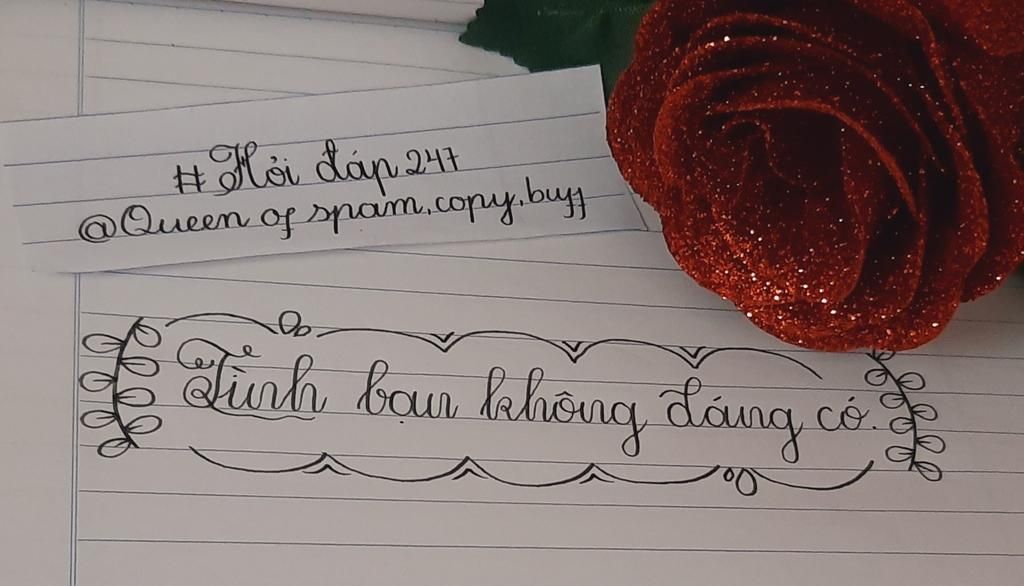 #Hỏi đáp 247
@Queen of spam,copy,buff
Tình bạn không đáng có.